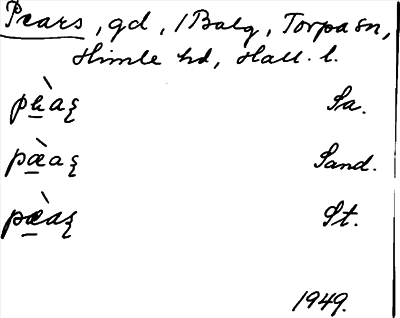 Pears, gd, /Balg, Torpa sn,
Himle hd, Hall. l.
pæ̀aʂ Sa.
pæ̀aʂ Sand.
pæ̀aʂ St.
1949.